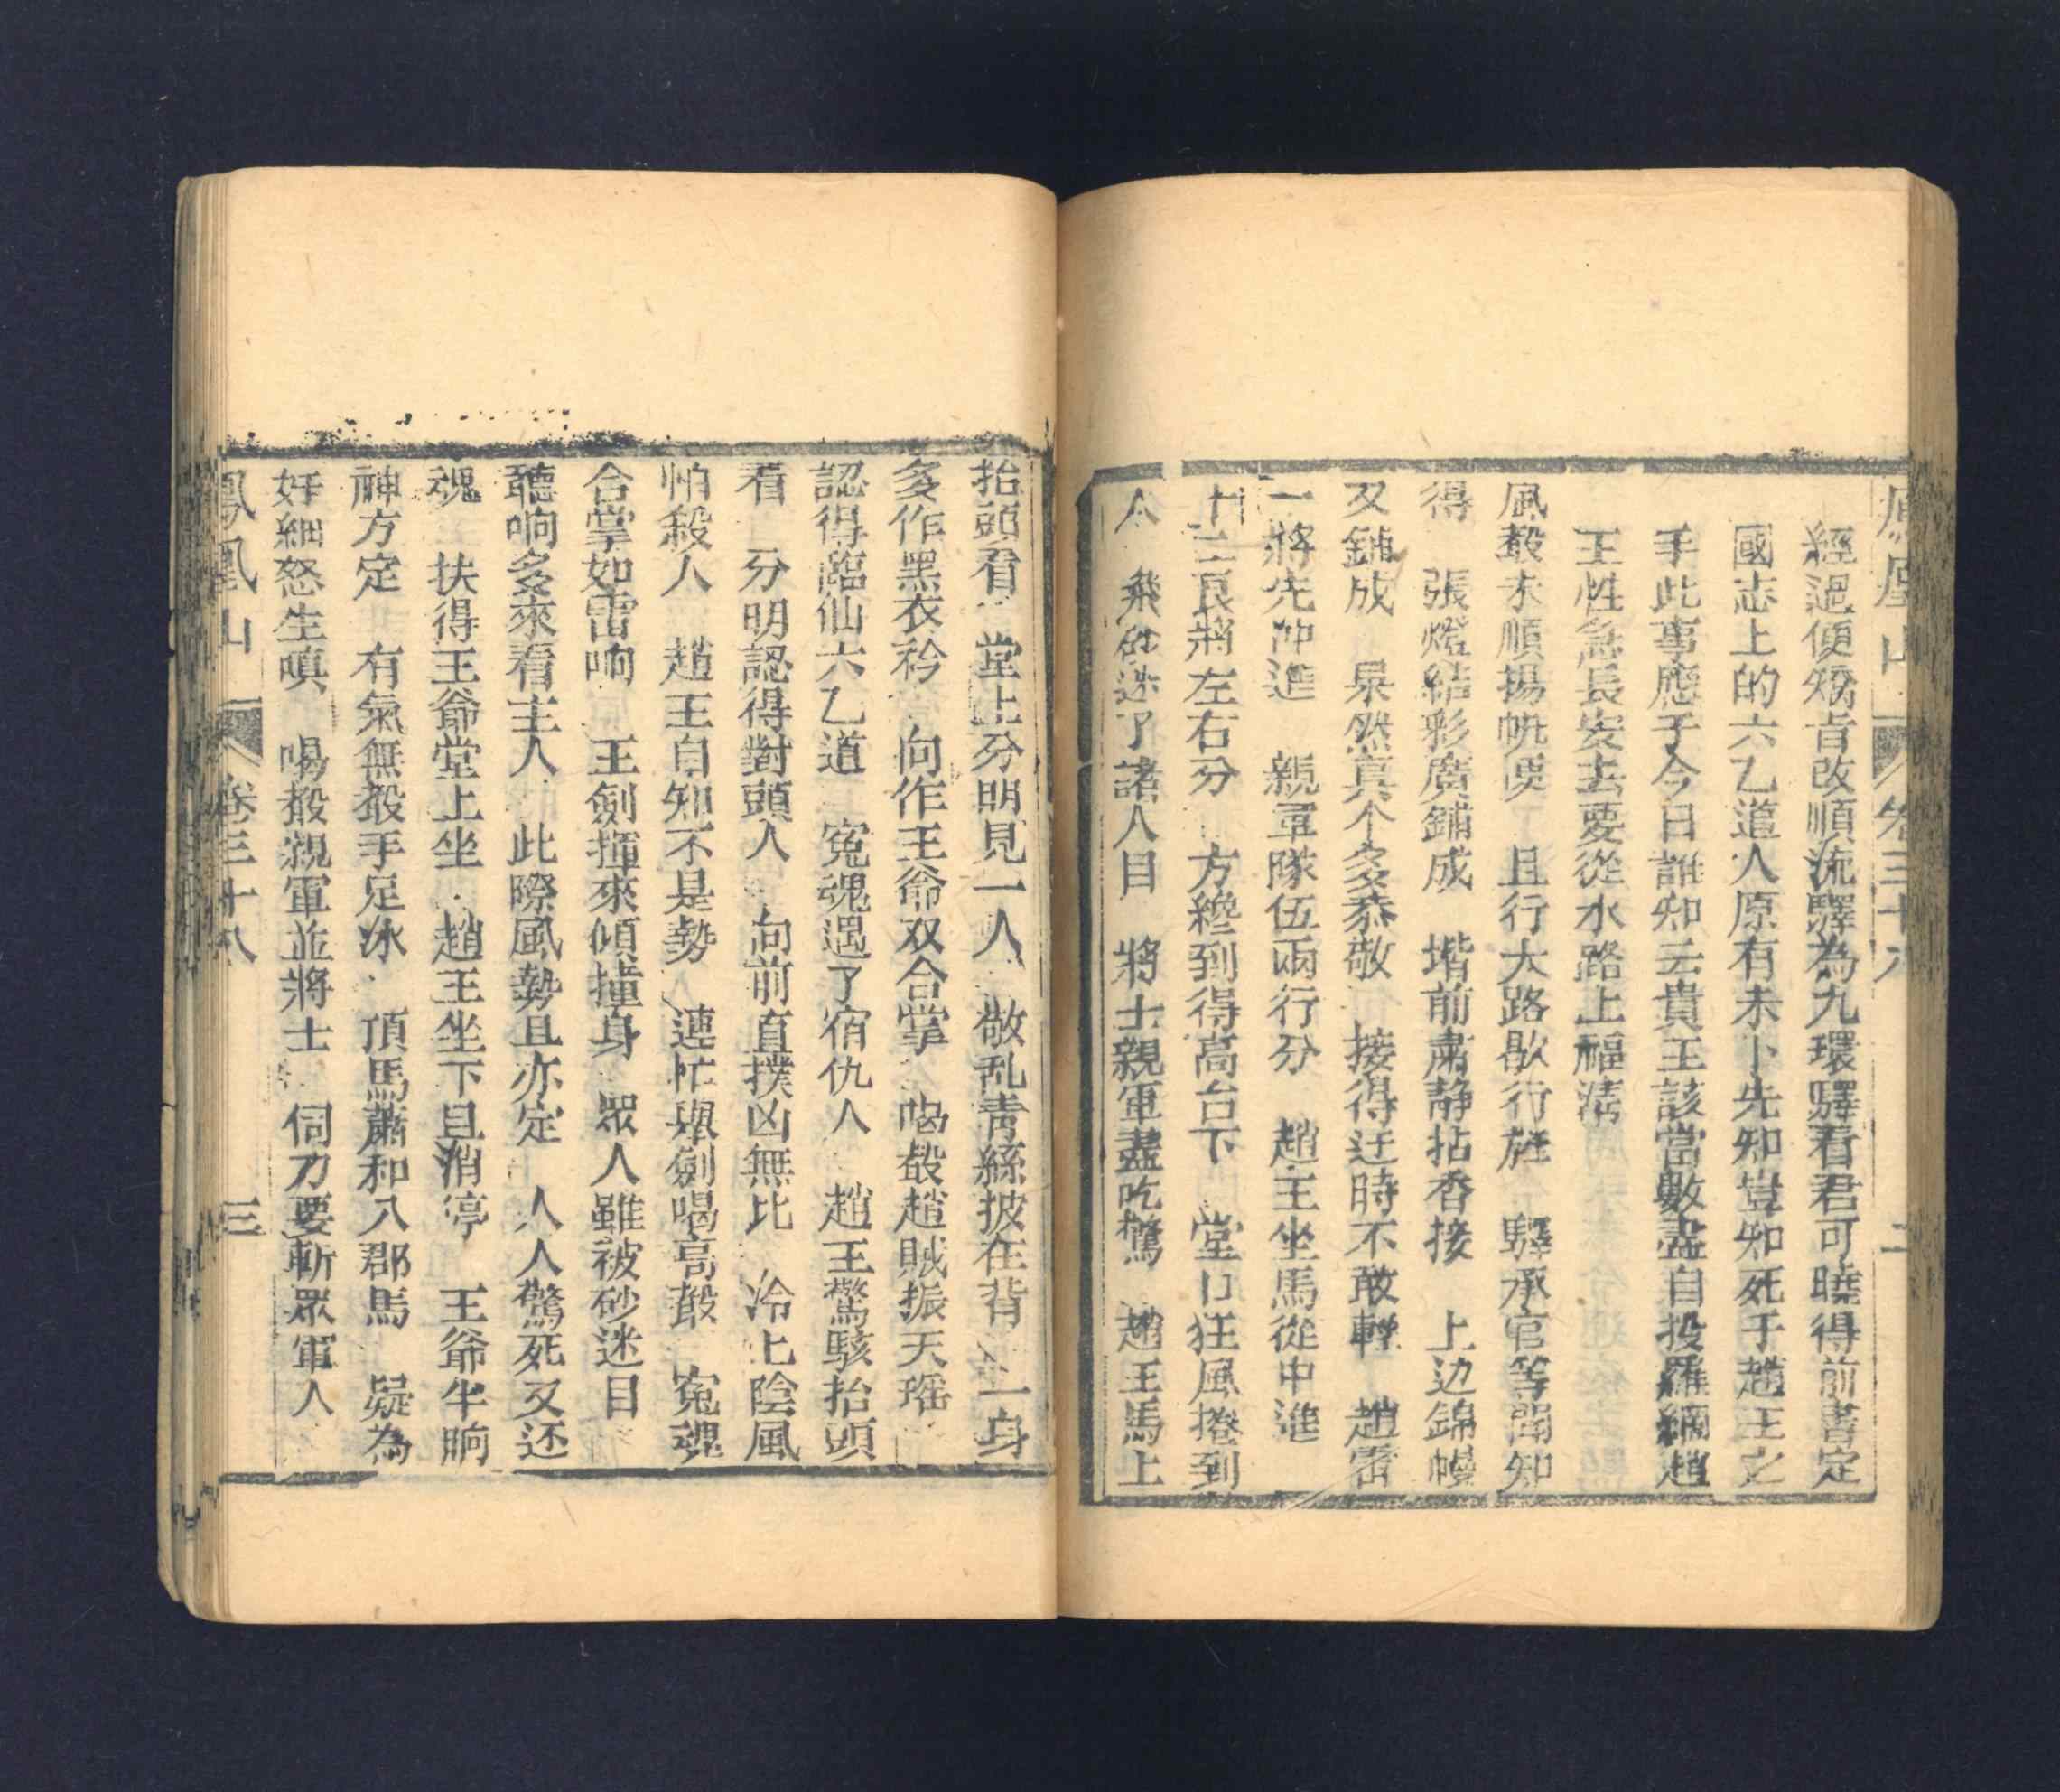 鳳凰山 卷三十八 二
經過便矯旨改順流驛為九環驛看君可曉得前書定
國志上的六乙道人原有未卜先知豈知死于趙王之
手此事應于今日誰知云貴王該當數盡自投羅網趙
王性急長安去要從水路上福清
風聲未順揚帆更 且行大路歇行旌 驛承官等聞知
得 張燈結彩廣鋪成 堦前肅静拈香接 上边錦幔
又鋪成 果然真个多恭敬 接得迂時不敢輕 趙雷
一將先冲進 親軍隊伍兩行分 趙王坐馬從中進
十二良將左右分 方纔到得高台下 堂口狂風捲到
人 飛砂迷了諸人目 將士親軍盡吃驚 趙王馬上
抬頭看 堂上分明見一人 散乱青絲披在背 一身
多作黑衣衿 向作王爺双合掌 喝聲趙賊振天瑶
認得臨仙六乙道 寃魂遇了宿仇人 趙王驚駭抬頭
看 分明認得對頭人 向前直撲凶無比 冷上陰風
怕殺人 趙王自知不是勢 連忙舉劍喝高聲 寃魂
合掌如雷响 王劍撞來傾撞身 眾人雖被砂迷目
聽响多來看主人 此際風勢且亦定 人人驚死又还
魂 扶得王爺堂上坐 趙王坐下且消停 王爺半晌
神方定 有氣無聲手足冰 頂馬蕭和入郡馬 疑為
奸細怒生嗔 喝聲親軍並將士 伺刀要斬眾軍人
鳳凰山 卷三十八 三